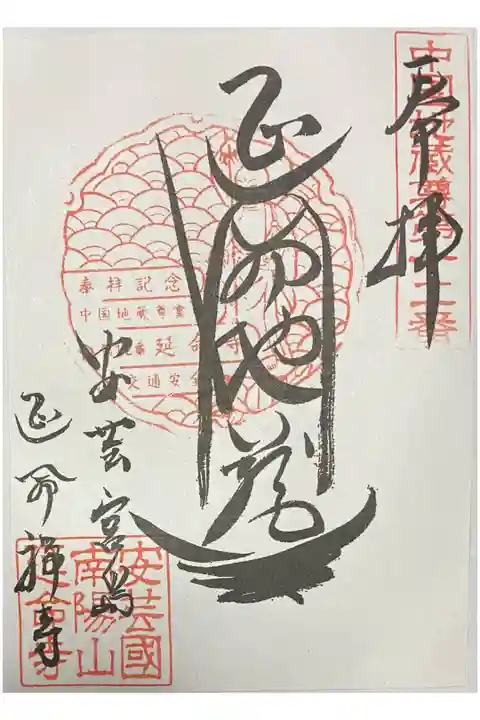 奉拝
中国地蔵尊第十二番
延命地蔵
奉拝記念
中国地蔵尊霊
延命寺
交通安全
安芸宮島
延命禅寺
安芸國
南陽山
延命寺